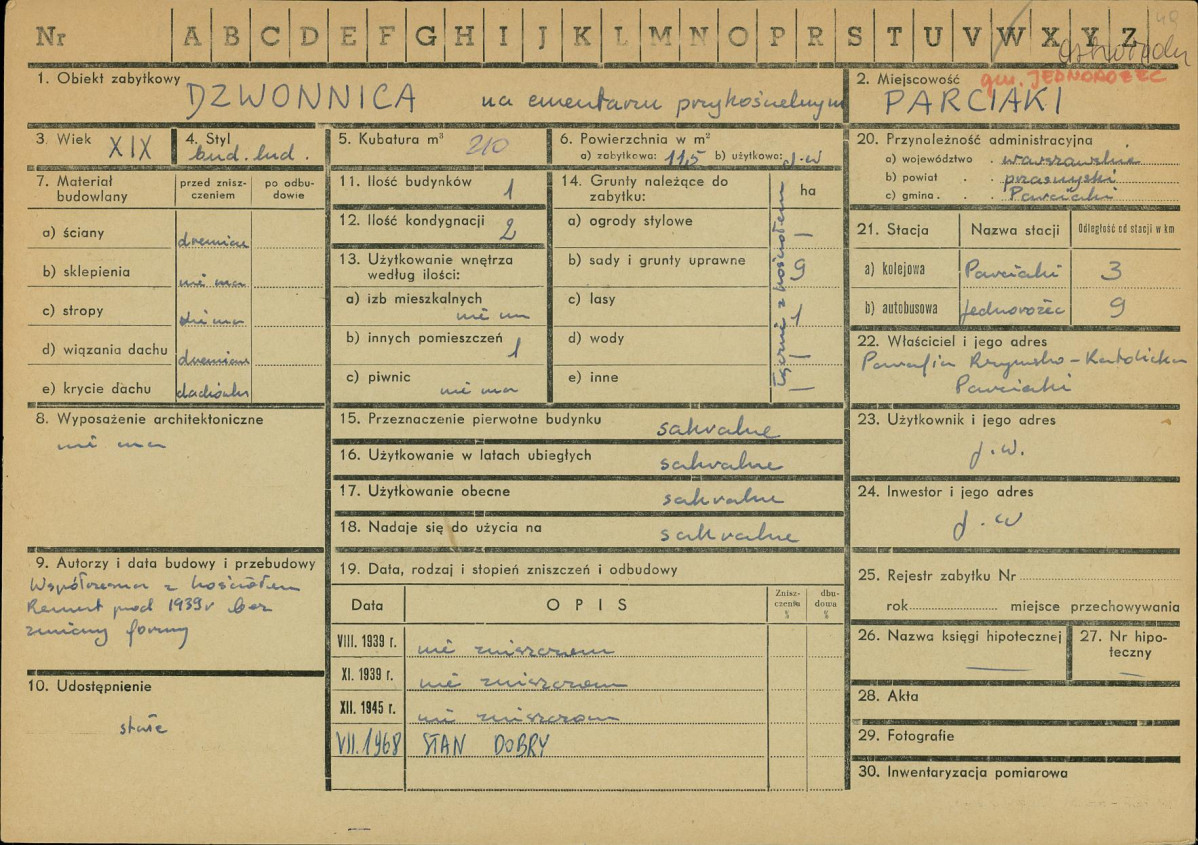 Nr A B C D E F G H I J K L M N O P R S T U V W X Y Z
1. Obiekt zabytkowy DZWONNICA na cmentarzu przykościelnym
2. Miejscowość gm. JEDNOROŻEC
PARCIAKI
3. Wiek XIX
4. Styl
bud. lud.
5. Kubatura m³ 210
6. Powierzchnia w m²
a) zabytkowa: 11,5 b) użytkowa: j.w
20. Przynoleżność administracyjna
a) województwo . warszawskie
b) powiat . . przasnyski
c) gmina . . . Parciaki
7. Materiał budowlany
przed znisz-
czeniem
po odbu-
dowie
a) ściany drewniane
b) sklepienia nie ma
c) stropy nie ma
d) wiązania dachu drewniane
e) krycie dachu dachówka
11. Ilość budynków 1
12. Ilość kondygnacji 2
13. Użytkowanie wnętrza
według ilości:
a) izb mieszkalnych
nie ma
b) innych pomieszczeń 1
c) piwnic nie ma
14. Grunty należące do
zabytku:
ha
a) ogrody stylowe
b) sady i grunty uprawne 9
c) lasy 1
d) wody
e) inne
Łącznie z kościołem
21. Stacja Nazwa stacji Odległość od stacji w km
a) kolejowa Parciaki 3
b) autobusowa Jednorożec 9
22. Właściciel i jego adres
Parafia Rzymsko-Katolicka
Parciaki
8. Wyposażenie architektoniczne
nie ma
15. Przeznaczenie pierwotne budynku sakralne
16. Użytkowanie w latach ubiegłych sakralne
17. Użytkowanie obecne sakralne
18. Nadaje się do użycia na sakralne
23. Użytkownik i jego adres
j.w.
24. Inwestor i jego adres
j.w
9. Autorzy i data budowy i przebudowy
Współczesna z kościołem
Remont przed 1939 r bez
zmiany formy
19. Data, rodzaj i stopień zniszczeń i odbudowy
Data OPIS
Znisz-
czenia
%
dbu-
dowa
%
VIII. 1939 r. nie zniszczona
XI. 1939 r. nie zniszczona
XII. 1945 r. nie zniszczona
VII. 1968 STAN DOBRY
25. Rejestr zabytku Nr
rok miejsce przechowywania
26. Nazwa księgi hipotecznej
27. Nr hipo-
teczny
10. Udostępnienie
stałe
28. Akta
29. Fotografie
30. Inwentaryzacja pomiarowa